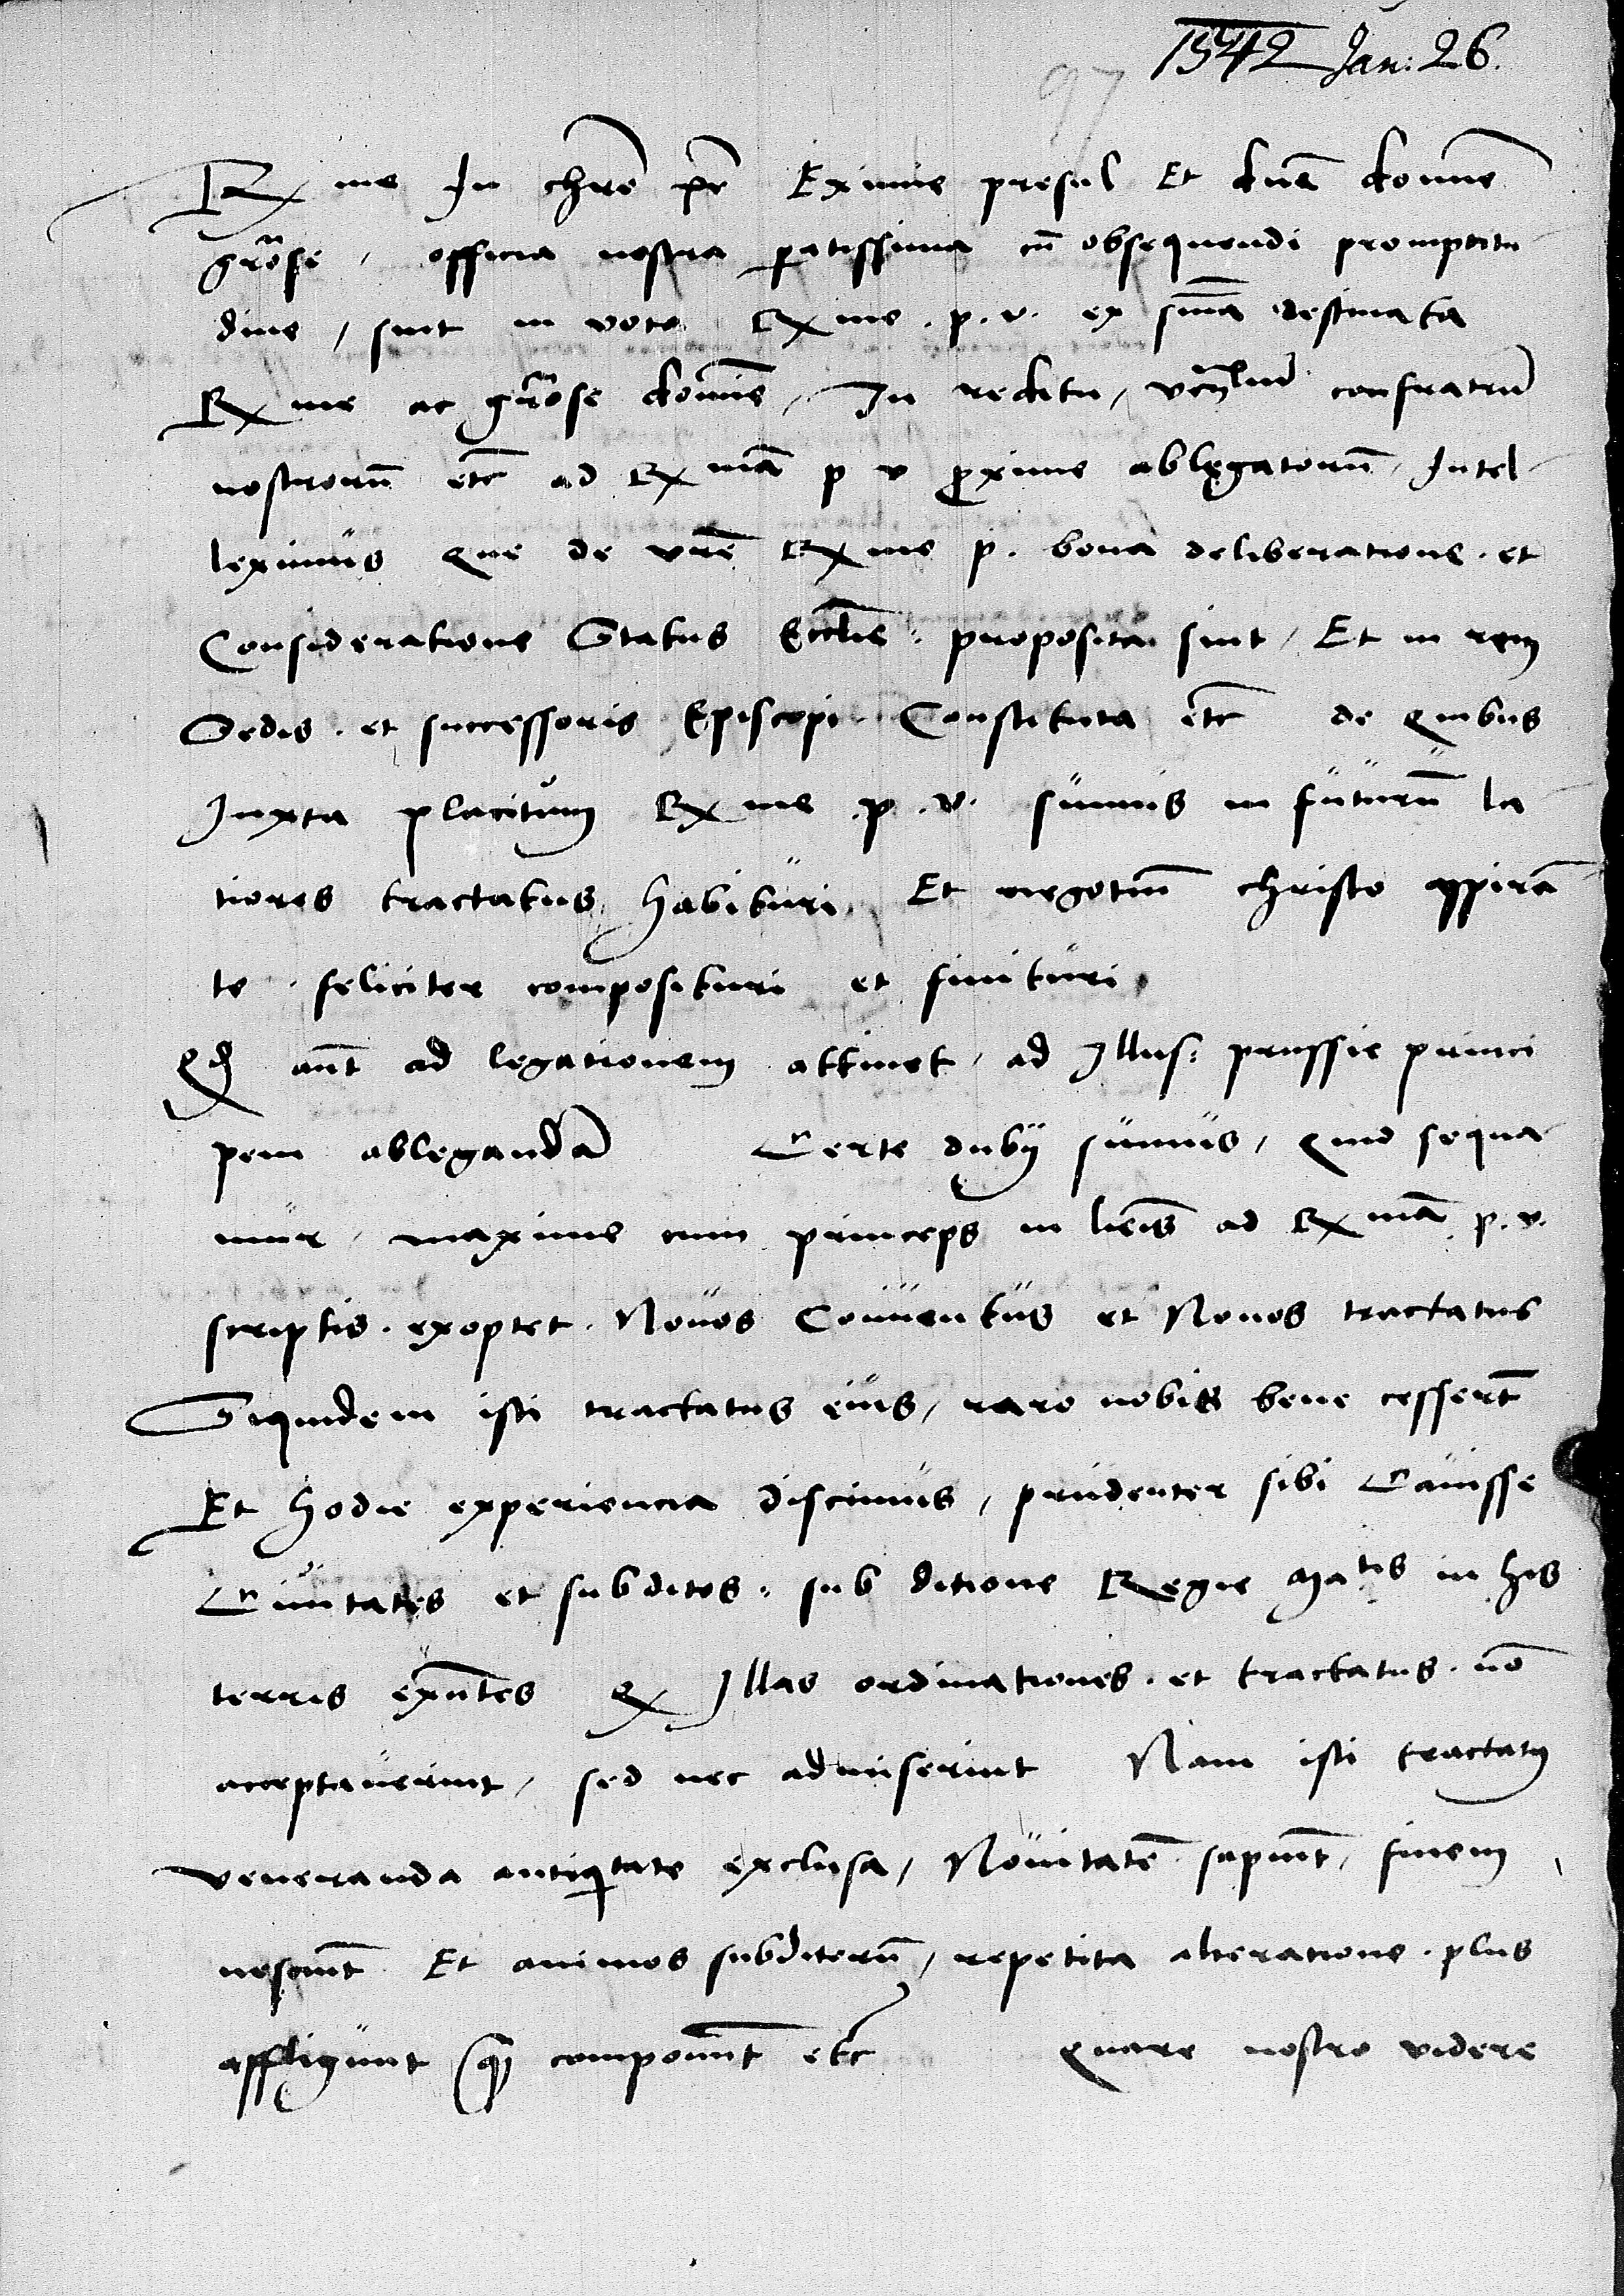 1542 Jan: 26.
97
Rx me In chro pr Eximie presul Et dne domine
grose, officia nostra patissima cu obsequendi promptitu
dine, sint in voto Rx me . p . v . ex sma destinata
Rx me ac grose domine, In reditu, ven lium confratru
nostroru etc ad Rx ma p v proxime ablegatoru Intel
leximus que de vre Rx me p . bona deliberatione . et
Consideratione Status Ecclie . proposita sint, Et in rem
Sedis . et successoris Episcopi . Constituta etc de quibus
Juxta placitum Rx me . p . v . sumus in futuru la
tiores tractatus habituri, Et negotiu christo aspira
te feliciter composituri et finituri,
Qd aut ad legationem attinet, ad Illus: prussie princi
pem ablegandā Certe dubij sumus, quid sequa
mur, maxime cum princeps in lreis ad Rx mā p . v .
scriptis . exoptet . Novos Conventus et Novos tractatus
Siquidem isti tractatus eius, raro nobis bene cessert
Et hodie experiencia discimus, prudenter sibi Cavisse
Civitates et subditos . sub ditione Regie Matis in his
terris exntes qd Illas ordinationes . et tractatus . no
acceptaverint, sed nec admiserint Nam isti tractatus
veneranda antiqtate exclusa, Novitate sapiunt, finem
nesciunt Et animos subditoru, repetita alteratione . plus
affligunt qm componunt etc quare nostro videre